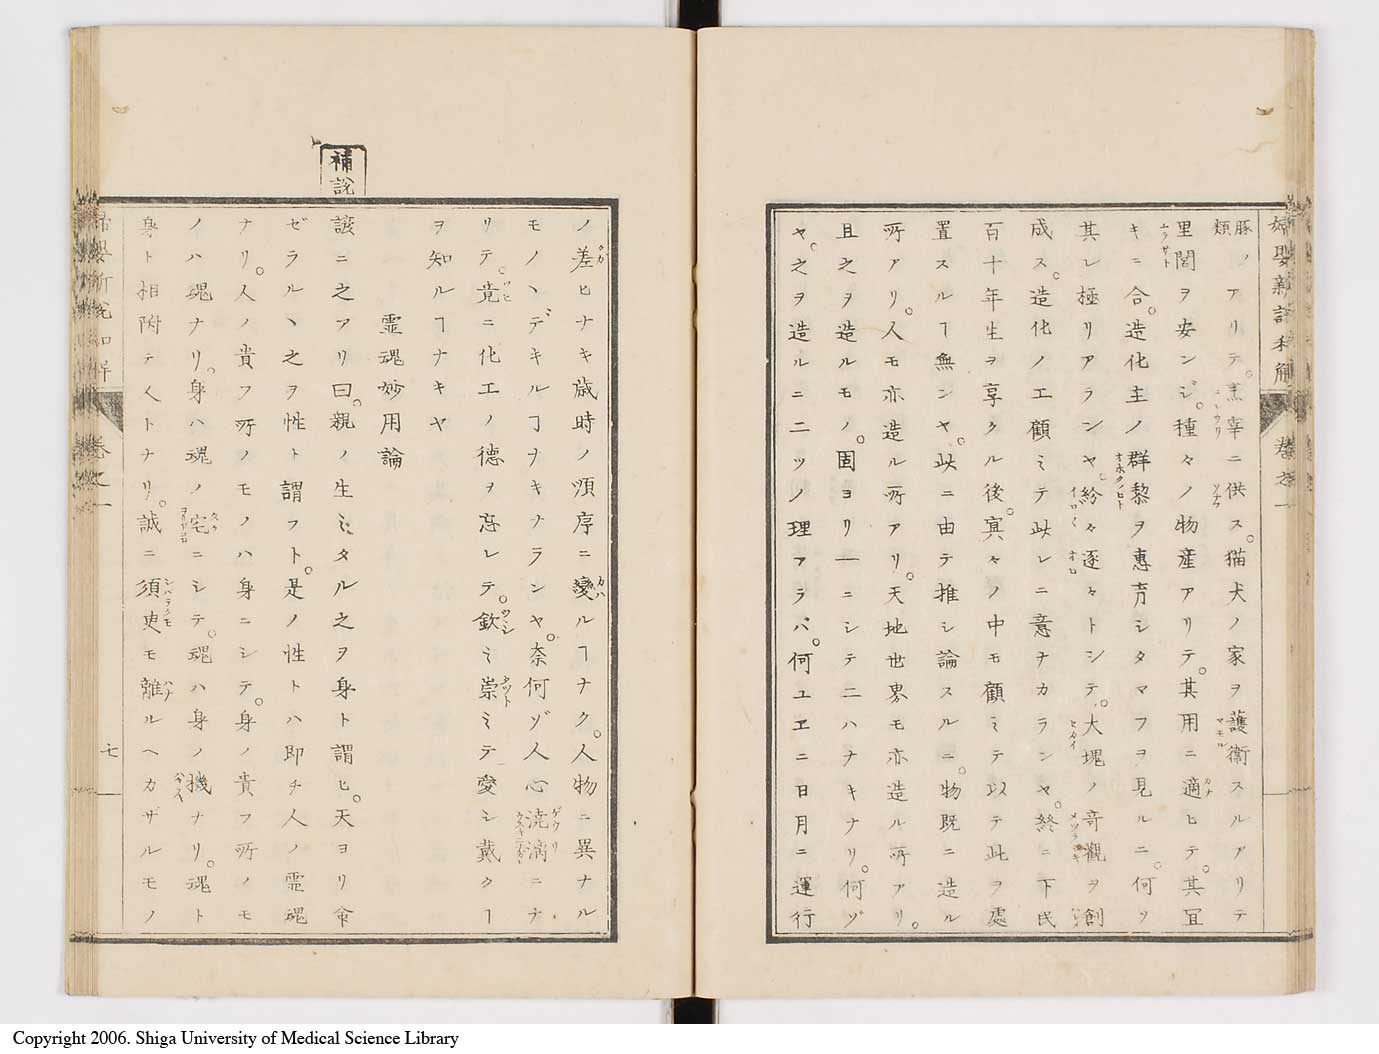 婦嬰新説和解 卷之一
豚ノ類アリテ。烹宰ニ供ス。猫犬ノ家ヲ護衛スルアリテ
里閭ヲ安ンジ。種々ノ物産アリテ。其用ニ適ヒテ。其宜
キニ合。造化主ノ群黎ヲ惠育シタマフヲ見ルニ。何ソ
其レ極リアランヤ。紛々逐々トシテ。大塊ノ奇觀ヲ創
成ス。造化ノ工顧ミテ此レニ意ナカランヤ。終ニ下民
百十年生ヲ享クル後。寞々ノ中モ顧ミテ以テ此ヲ處
置スルヿ無ンヤ。此ニ由テ推シ論スルニ。物既ニ造ル
所アリ。人モ亦造ル所アリ。天地世界モ亦造ル所アリ。
且之ヲ造ルモノ。固ヨリ一ニシテ二ハナキナリ。何ゾ
ヤ。之ヲ造ルニ二ツノ理アラバ。何ユヱニ日月ニ運行
ノ差ヒナキ歳時ノ順序ニ變ルヿナク。人物ニ異ナル
モノヽデキルヿナキナランヤ。奈何ゾ人心澆漓ニナ
リテ。竟ニ化工ノ德ヲ忘レテ。欽ミ崇ミテ愛シ戴クヿ
ヲ知ルヿナキヤ
靈魂妙用論
補説
諺ニ之アリ曰。親ノ生ミタル之ヲ身ト謂ヒ。天ヨリ命
ゼラルヽ之ヲ性ト謂フト。是ノ性トハ即チ人ノ靈魂
ナリ。人ノ貴フ所ノモノハ身ニシテ。身ノ貴フ所ノモ
ノハ魂ナリ。身ハ魂ノ宅ニシテ。魂ハ身ノ機ナリ。魂ト
身ト相附テ人トナリ。誠ニ須臾モ離ルヘカザルモノ
卷之一 七
Copyright 2006. Shiga University of Medical Science Library